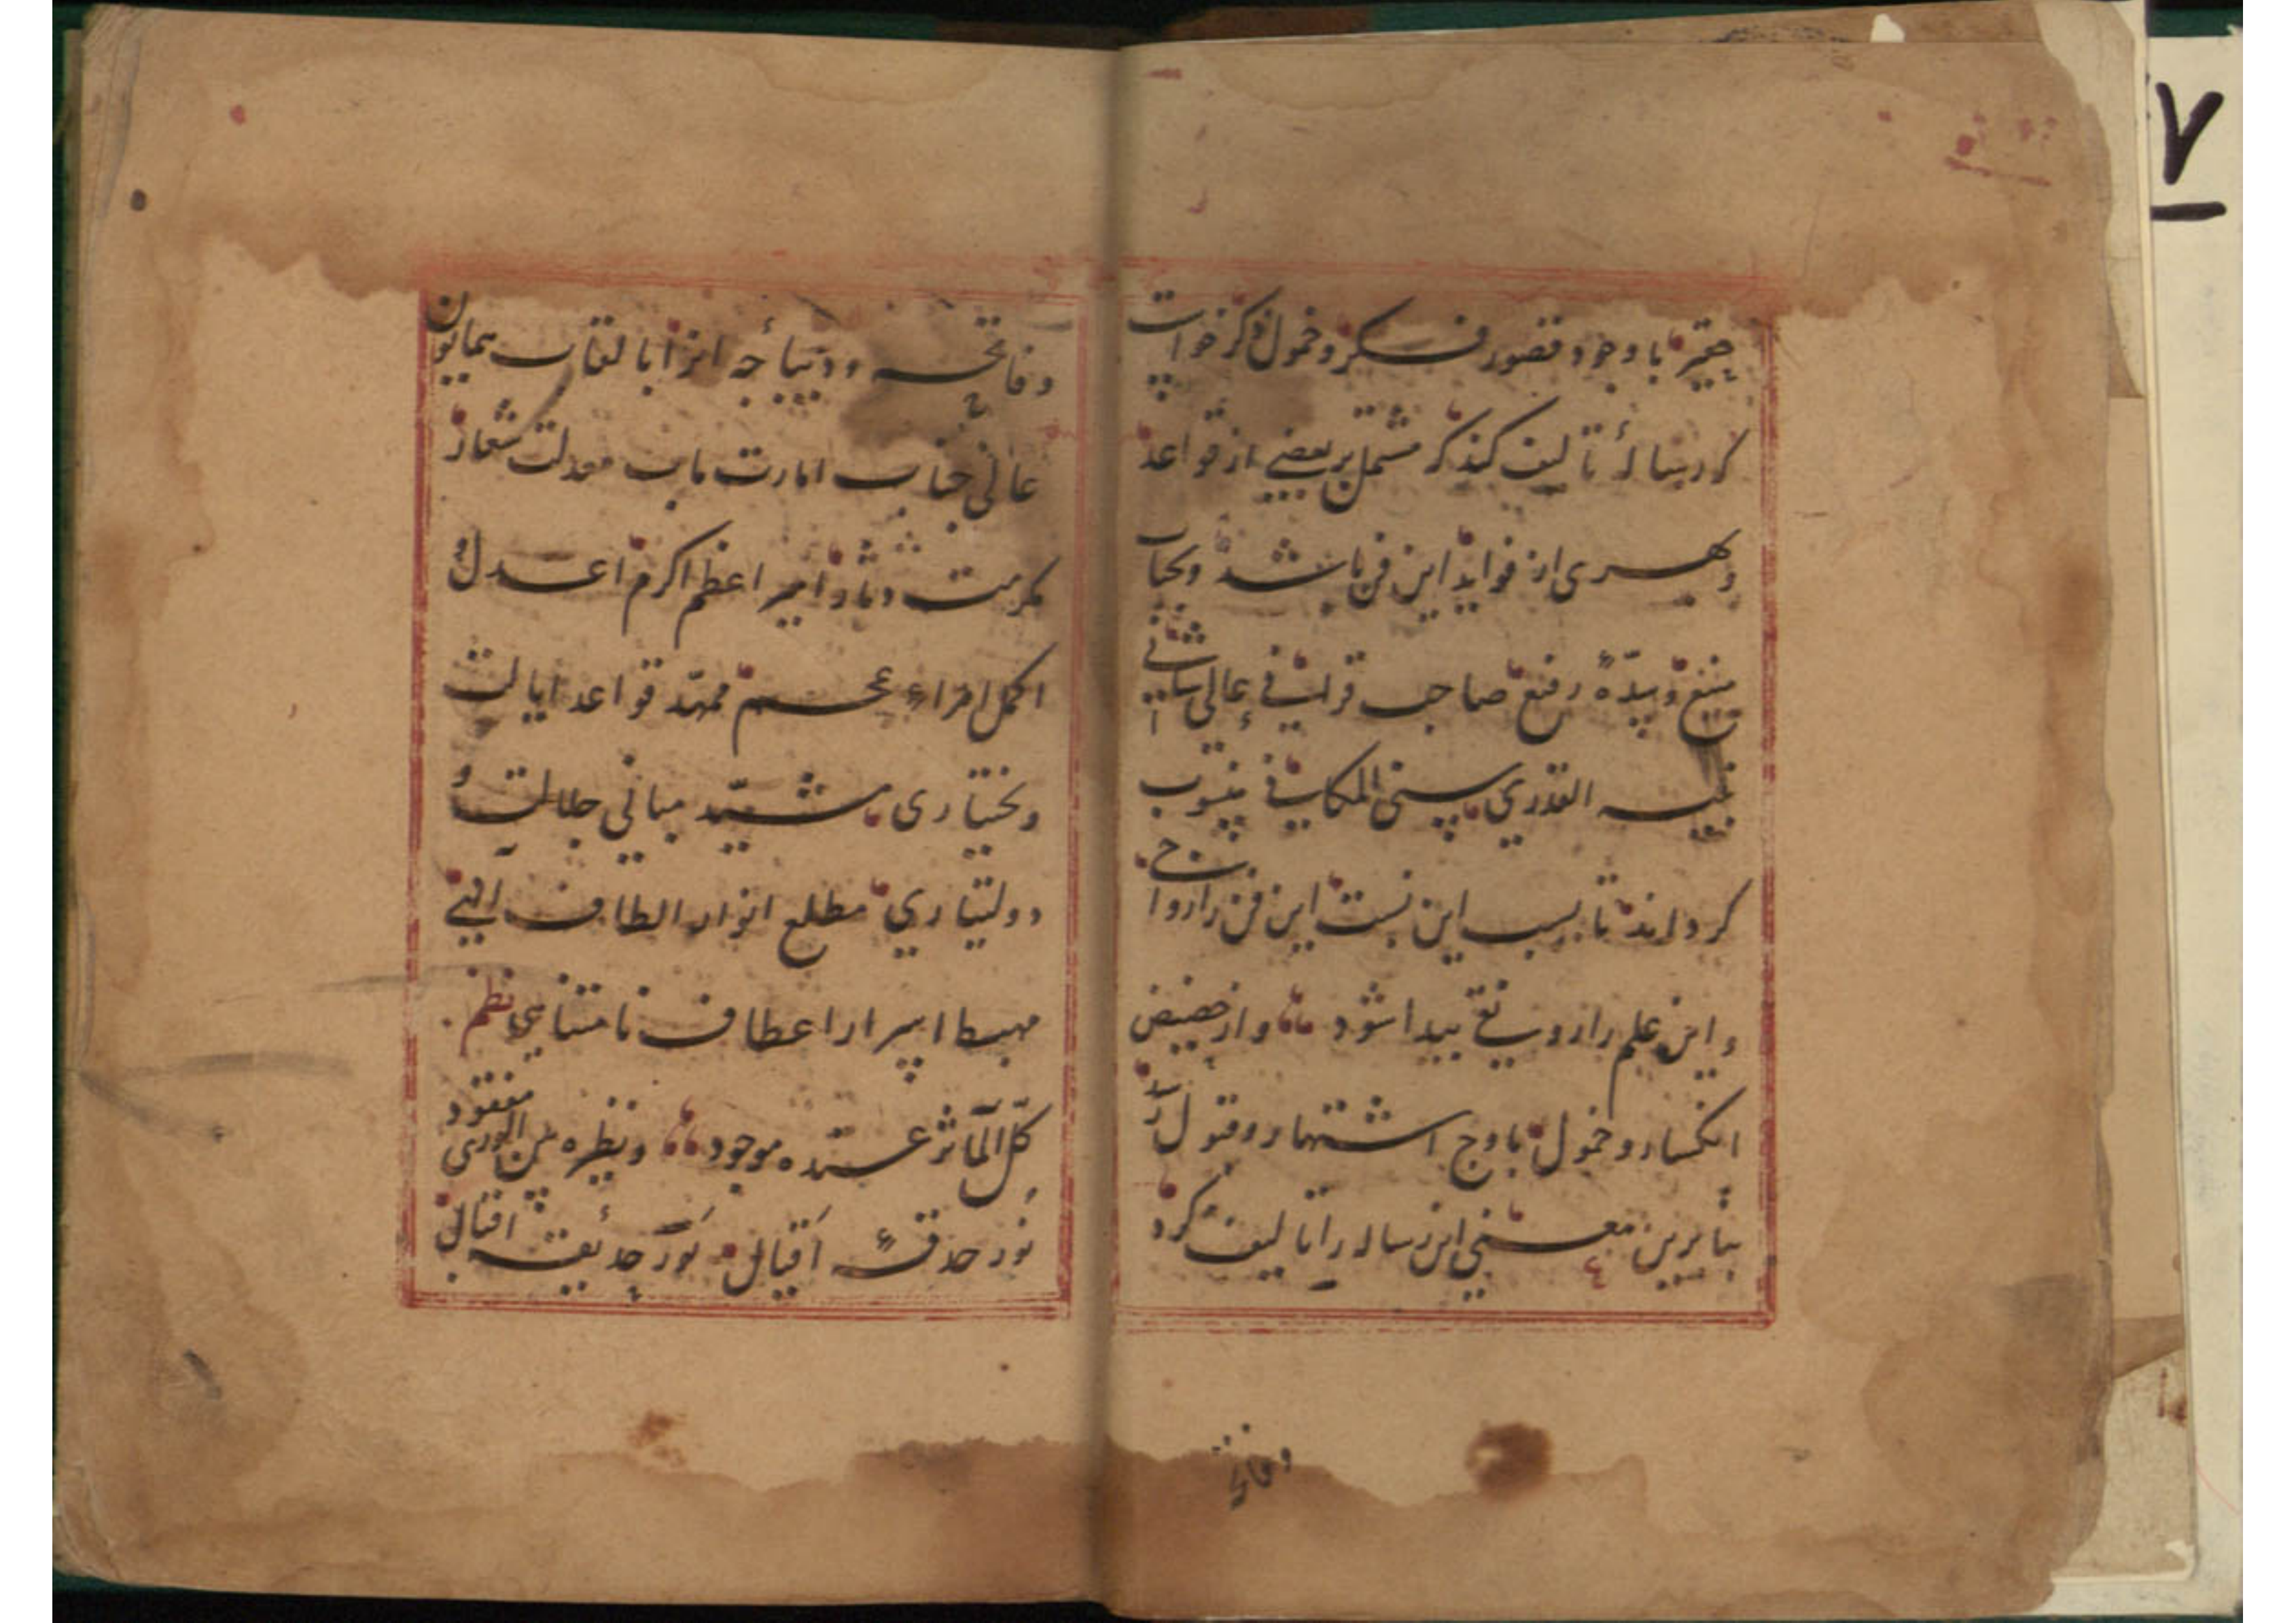 حقیر با وجود قصور فکر و خمول ذکر خواست
که رساله تألیف کند که مشتمل بر بعضی از قواعد
و بهری از فواید این فن باشد و بجناب
منیع و سدّهٔ رفیع صاحب قرانی عالی شانی
نفیسه القدری سنی المکانی منسوب
کرداند تا بسبب این نسبت این فن را رواج
و این علم را رونقی پیدا شود و از حضیض
انکسار و خمول باوج اشتهار و قبول رسد
بنابرین معنی این رساله را تالیف کرد
وفاتحه
وفاتحه و دیباجه انرا بالقاب همایون
عالی جناب امارت ماب معدلت شعار
مکرمت دثار امیر اعظم اکرم اعدل
اکمل امراء عجم ممهّد قواعد ایالت
و بختیاری مشیّد مبانی جلالت و
دولتیاری مطلع انوار الطاف آلهی
مهبط اسرار اعطاف نامتناهی نظم
کلّ المآثر عنده موجود ونظیره من الوری مفقود
نُور حدقهٔ اقبال نَور حدیقه اقبال
۷